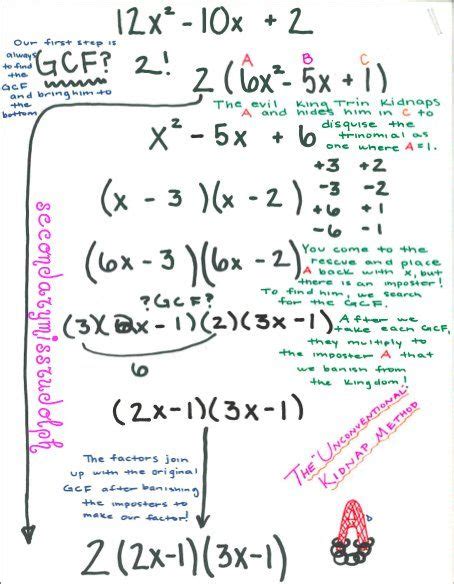 12x² - 10x + 2
Our first step is
always
to find
the
GCF
and bring him to
the
bottom
GCF? 2!
A B C
2(6x² - 5x + 1)
The evil King Trin Kidnaps
A and hides him in C to
disguise the
trinomial as
one where A=1.
x² - 5x + 6
+3 +2
-3 -2
+6 +1
-6 -1
(x - 3)(x - 2)
(6x - 3)(6x - 2)
You come to the
rescue and place
A back with x, but
there is an imposter!
To find him, we search
for the GCF.
?GCF?
(3)(2x-1)(2)(3x-1)
6
After we
take each GCF,
they multiply to
the imposter A that
we banish from
the Kingdom!
(2x-1)(3x-1)
secondarymissrudolph
The "Unconventional"
Kidnap Method
The factors join
up with the original
GCF after banishing
the imposters to
make our factor!
2(2x-1)(3x-1)